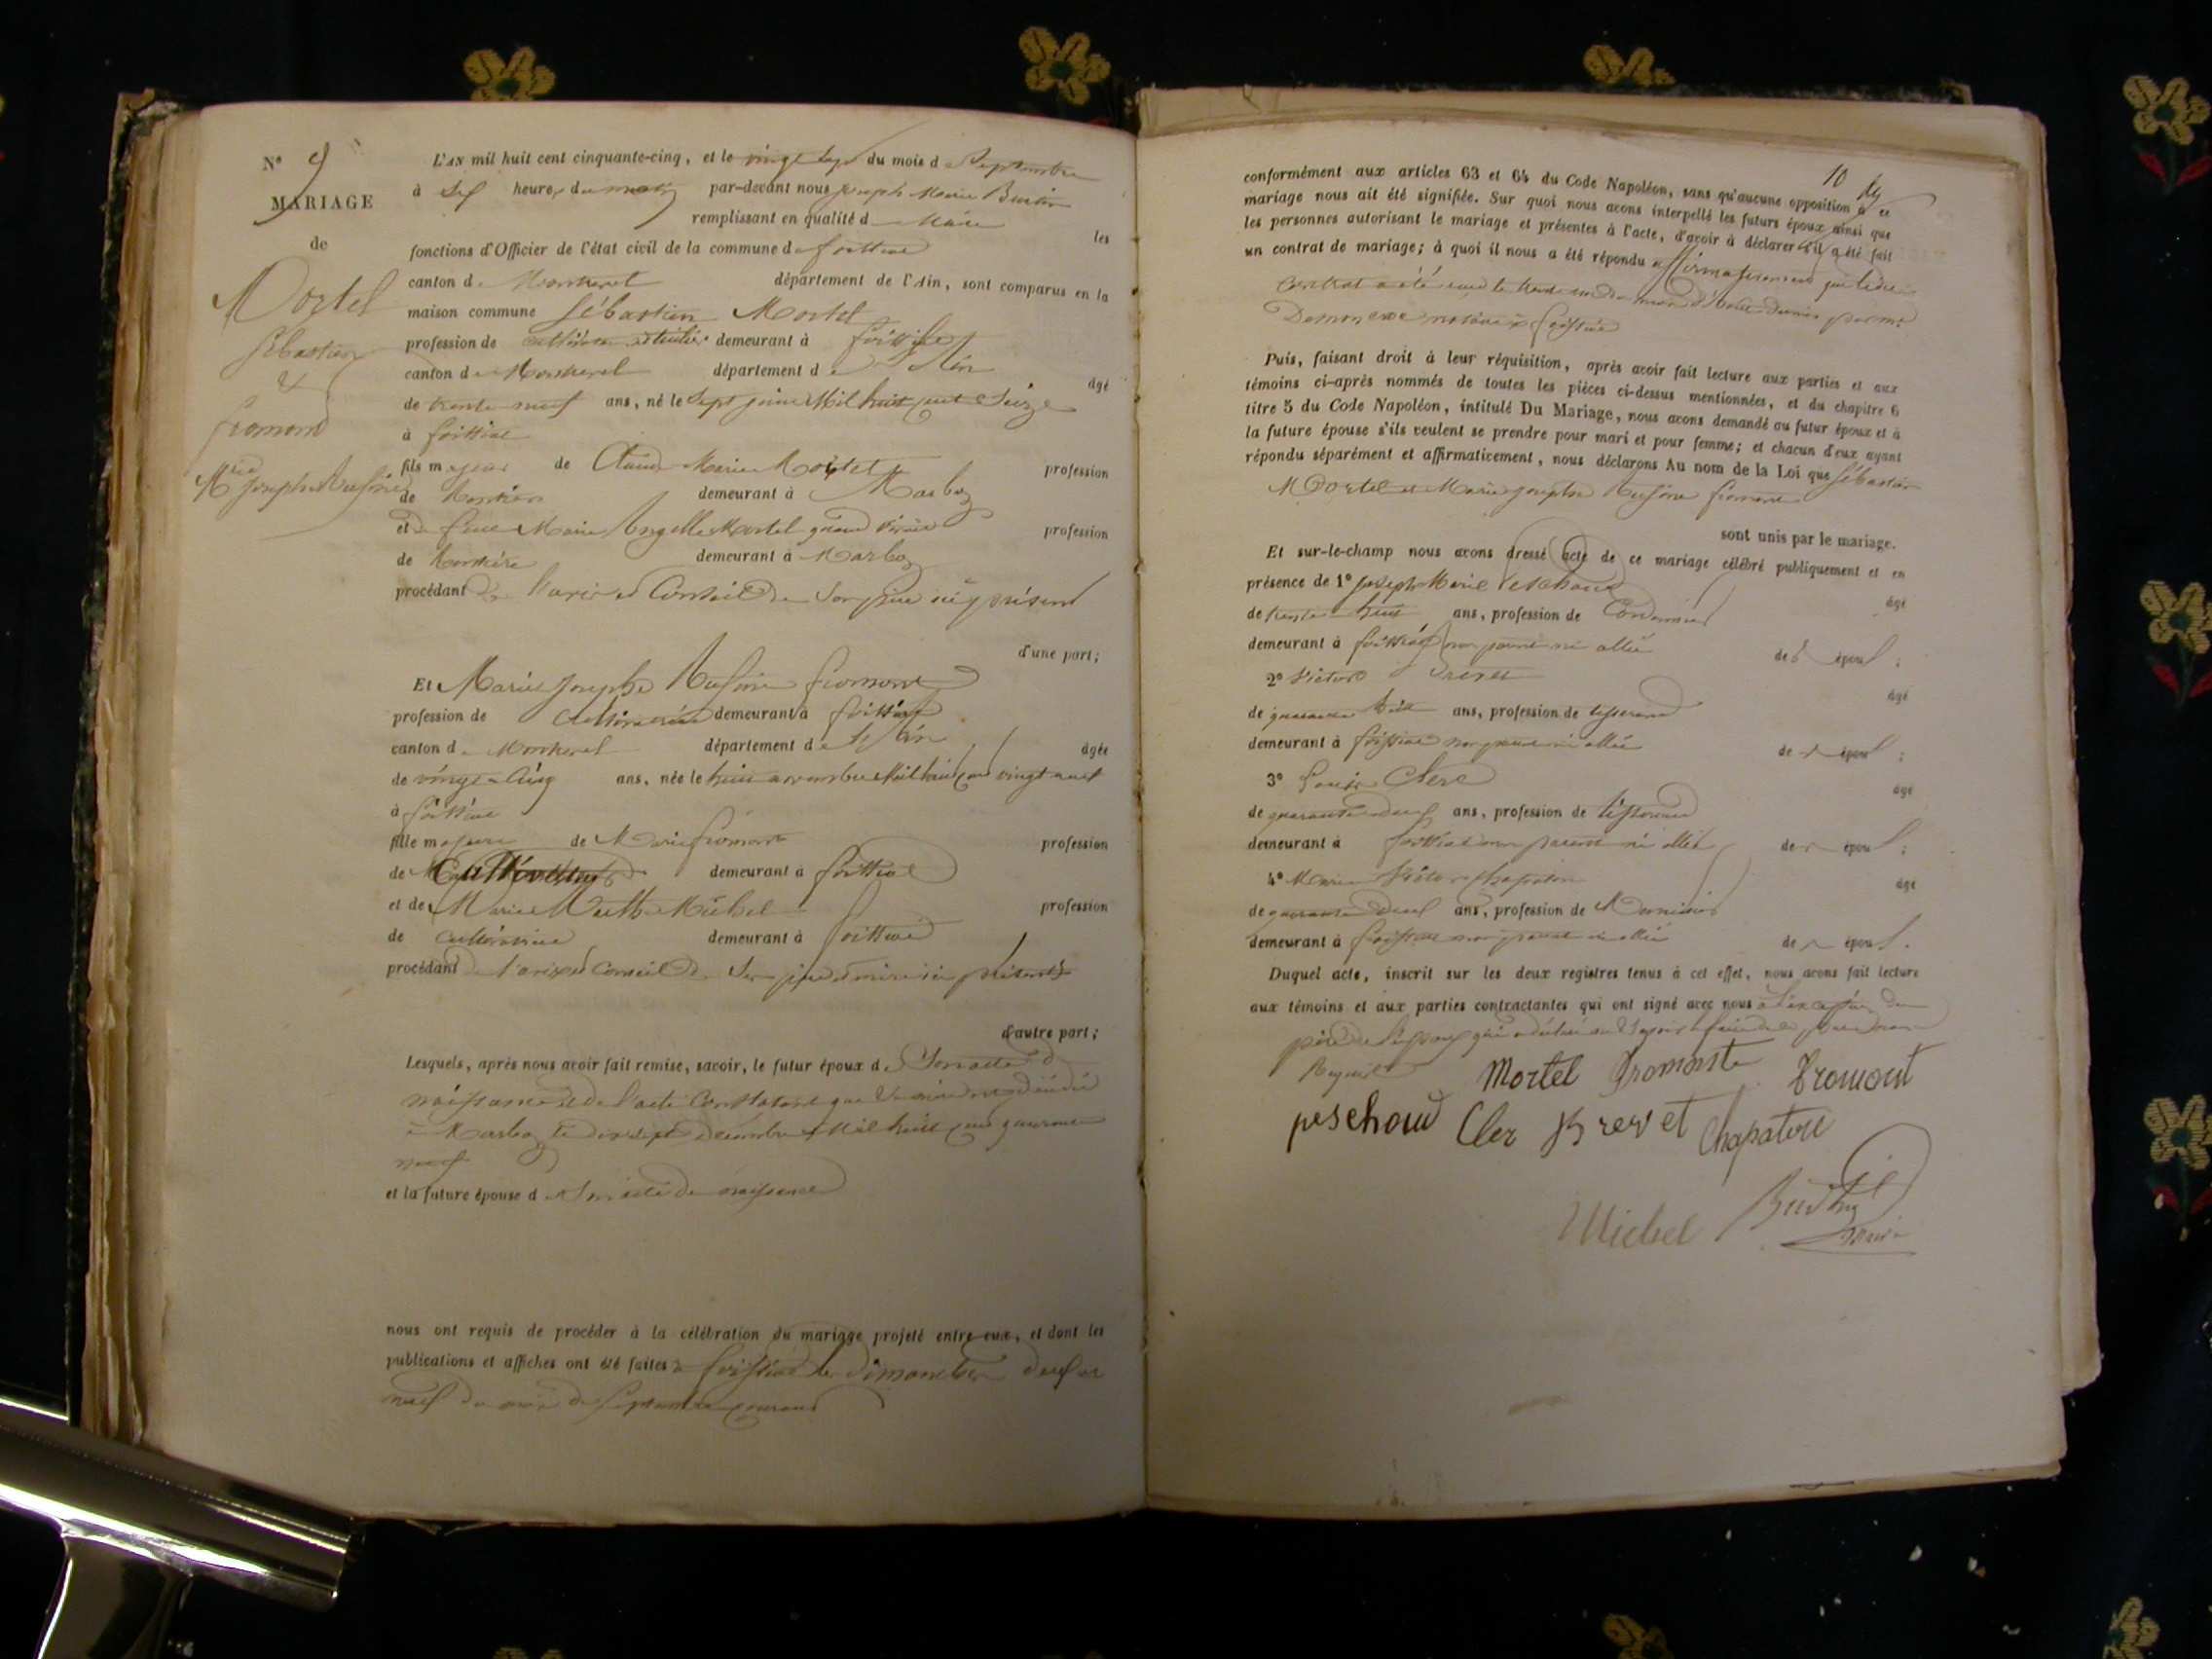 N° 9
MARIAGE
de
Mortel
Sébastien
&
fromont
Mie Josephe Rufine
L'AN mil huit cent cinquante-cinq, et le vingt sept du mois de Septembre
à heures du matin par-devant nous Joseph Marie
remplissant en qualité de Maire les
fonctions d'Officier de l'état civil de la commune de foissiat
canton de Montrevel département de l'Ain, sont comparus en la
maison commune Sébastien Mortel
profession de demeurant à foissiat
canton de Montrevel département de l'Ain âgé
de trente neuf ans, né le sept juin Mil huit cent seize
à foissiat
fils majeur de Claude Marie Mortel profession
de Rentier demeurant à Marboz
et de feue Marie Angelle Mortel quand vivait profession
de Rentière demeurant à Marboz
procédant de l'avis et Conseil de son père ici présent
d'une part;
Et Marie Josephe Rufine fromont
profession de Cultivatrice demeurant à foissiat
canton de Montrevel département de l'Ain âgée
de vingt-cinq ans, née le huit novembre Mil huit cent vingt neuf
à foissiat
fille majeure de Marie fromont profession
de Cultivateur demeurant à foissiat
et de Marie Michel profession
de cultivatrice demeurant à foissiat
procédant de l'avis et Conseil de ses père et mère ici présents
d'autre part;
Lesquels, après nous avoir fait remise, savoir, le futur époux de Son acte de
naissance et de l'acte Constatant que sa mère est décédée
à Marboz le dix sept décembre Mil huit cent quarante
neuf
et la future épouse de Son acte de naissance
nous ont requis de procéder à la célébration du mariage projeté entre eux, et dont les
publications et affiches ont été faites à foissiat les Dimanches deux et
neuf du mois de Septembre courant
10
conformément aux articles 63 et 64 du Code Napoléon, sans qu'aucune opposition à ce
mariage nous ait été signifiée. Sur quoi nous avons interpellé les futurs époux ainsi que
les personnes autorisant le mariage et présentes à l'acte, d'avoir à déclarer s'il a été fait
un contrat de mariage; à quoi il nous a été répondu affirmativement que ledit
Contrat a été reçu le trente un du mois d'Août dernier par me
notaire à foissiat
Puis, faisant droit à leur réquisition, après avoir fait lecture aux parties et aux
témoins ci-après nommés de toutes les pièces ci-dessus mentionnées, et du chapitre 6
titre 5 du Code Napoléon, intitulé Du Mariage, nous avons demandé au futur époux et à
la future épouse s'ils veulent se prendre pour mari et pour femme; et chacun d'eux ayant
répondu séparément et affirmativement, nous déclarons Au nom de la Loi que Sébastien
Mortel et Marie Josephe Rufine fromont
sont unis par le mariage.
Et sur-le-champ nous avons dressé acte de ce mariage célébré publiquement et en
présence de 1° Joseph Marie Peschoud âgé
de trente huit ans, profession de Cordonnier
demeurant à foissiat non parent ni allié des époux;
2° Victor Brevet âgé
de quarante huit ans, profession de tisserand
demeurant à foissiat non parent ni allié des époux;
3° Louis Clerc âgé
de quarante deux ans, profession de tisserand
demeurant à foissiat non parent ni allié des époux;
4° Marie Victor Chapaton âgé
de quarante deux ans, profession de Menuisier
demeurant à foissiat non parent ni allié des époux.
Duquel acte, inscrit sur les deux registres tenus à cet effet, nous avons fait lecture
aux témoins et aux parties contractantes qui ont signé avec nous à l'exception du
père de l'époux qui a déclaré ne savoir
Requis
Mortel Fromont
peschoud Cler Brevet Chapaton
Michel
maire